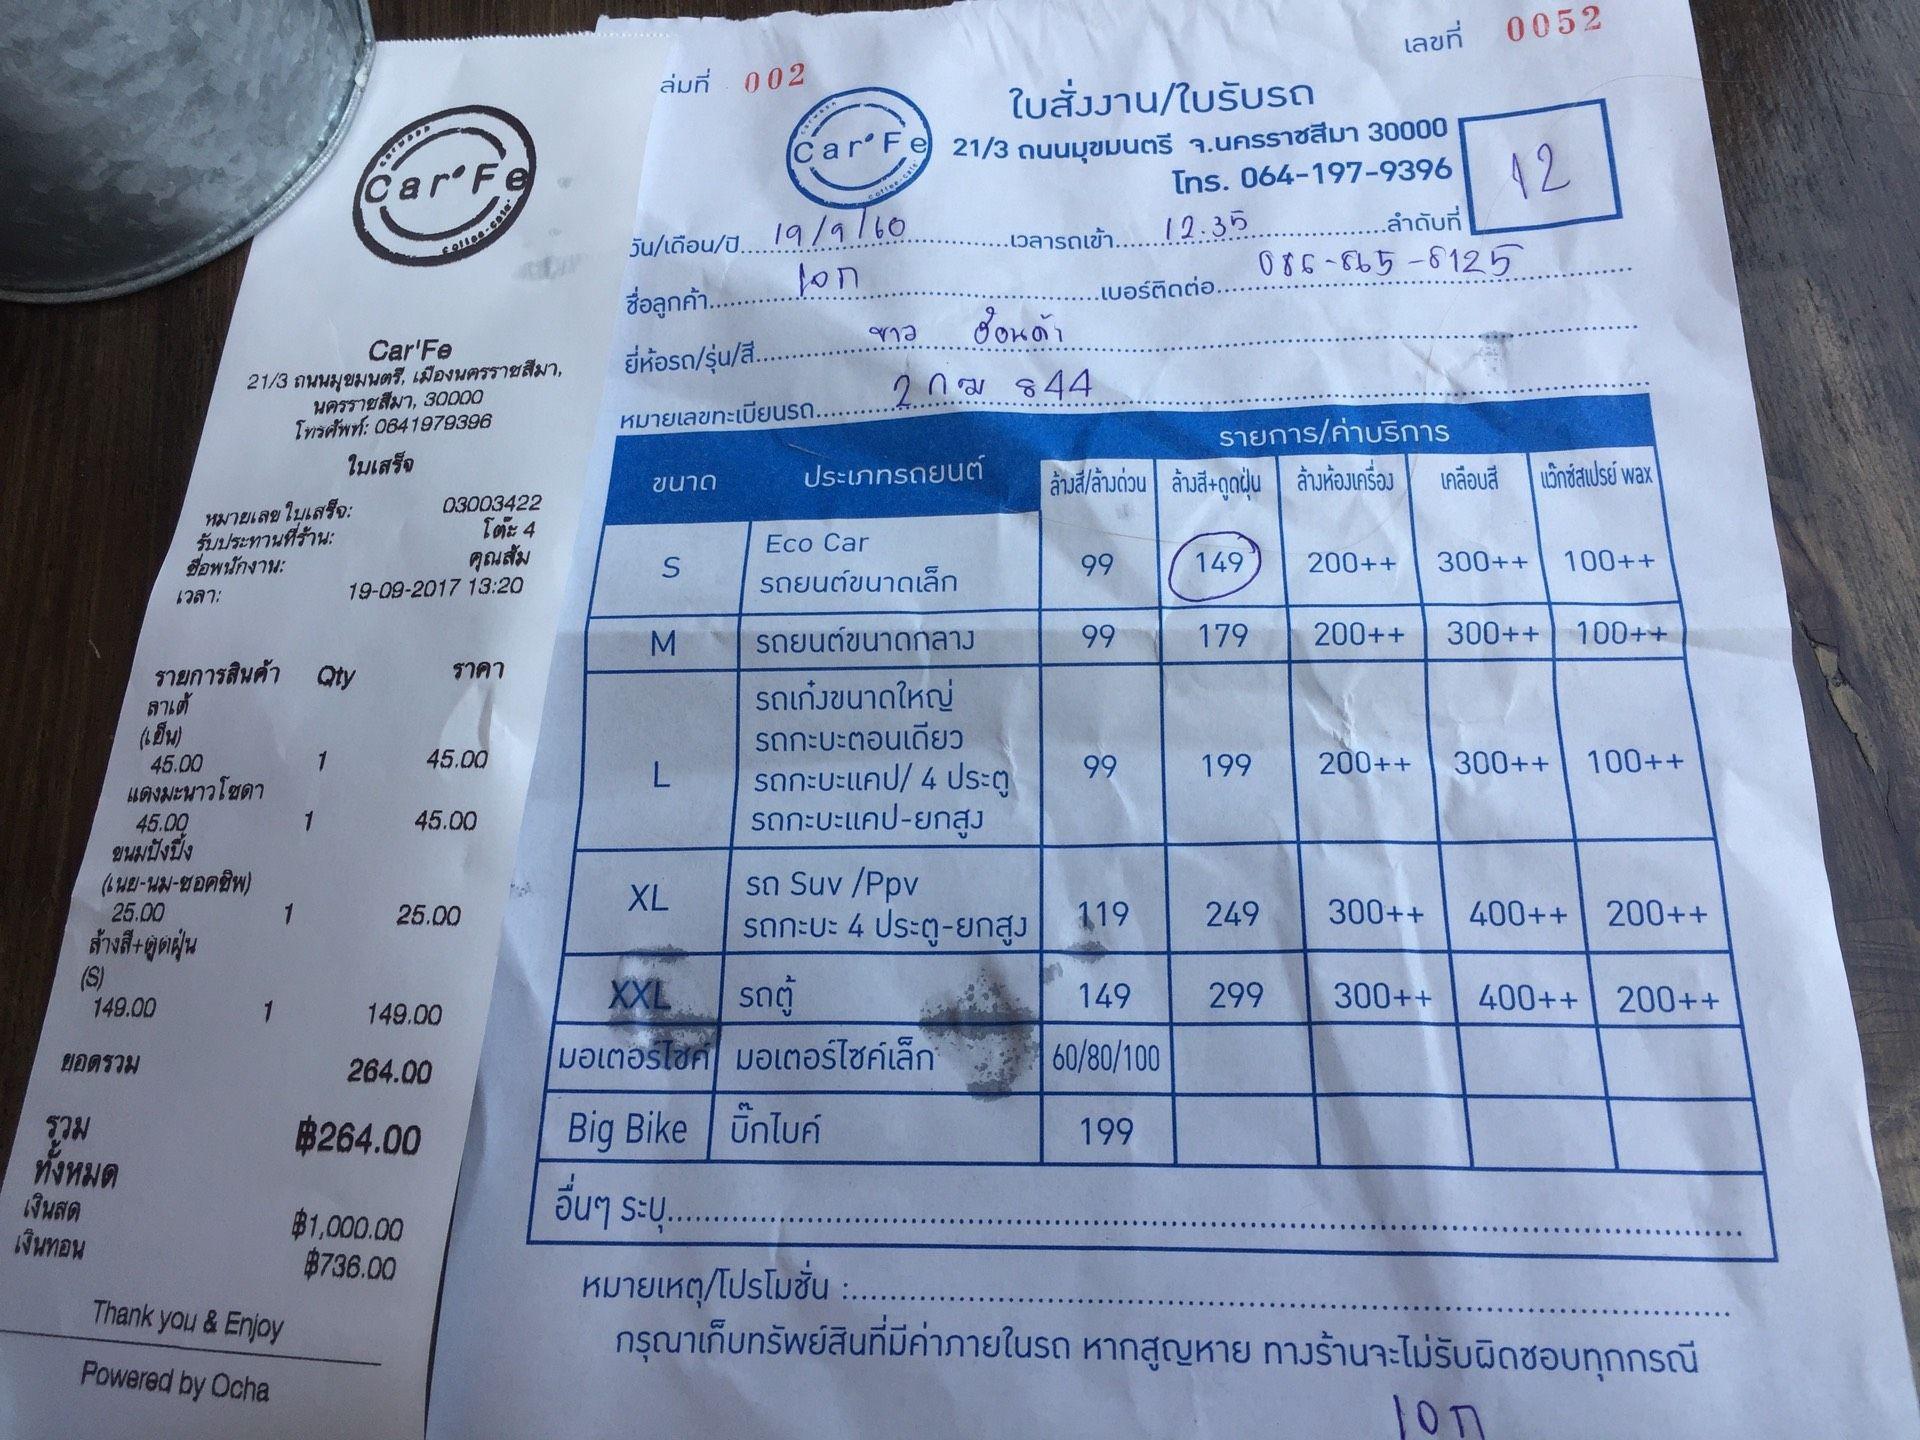 carwash
Car'Fe
Coffee-Cafe'
Car'Fe
21/3 ถนนมุขมนตรี, เมืองนครราชสีมา,
นครราชสีมา, 30000
โทรศัพท์: 0641979396
ใบเสร็จ
หมายเลขใบเสร็จ: 03003422
รับประทานที่ร้าน: โต๊ะ 4
ชื่อพนักงาน: คุณส้ม
เวลา: 19-09-2017 13:20
รายการสินค้า Qty ราคา
ลาเต้
(เย็น)
45.00 1 45.00
แดงมะนาวโซดา
45.00 1 45.00
ขนมปังปิ้ง
(เนย-นม-ชอคชิพ)
25.00 1 25.00
ล้างสี+ดูดฝุ่น
(S)
149.00 1 149.00
ยอดรวม 264.00
รวม ฿264.00
ทั้งหมด
เงินสด ฿1,000.00
เงินทอน ฿736.00
Thank you & Enjoy
Powered by Ocha
ล่มที่ 002
เลขที่ 0052
carwash
Car'Fe
Coffee-Cafe'
ใบสั่งงาน/ใบรับรถ
21/3 ถนนมุขมนตรี จ.นครราชสีมา 30000
โทร. 064-197-9396
วัน/เดือน/ปี 19/9/60 เวลารถเข้า 12.35 ลำดับที่ 12
ชื่อลูกค้า เอก เบอร์ติดต่อ 086-865-8125
ยี่ห้อรถ/รุ่น/สี ขาว ฮอนด้า
หมายเลขทะเบียนรถ 2 กฒ 844
รายการ/ค่าบริการ
ขนาด ประเภทรถยนต์ ล้างสี/ล้างด่วน ล้างสี+ดูดฝุ่น ล้างห้องเครื่อง เคลือบสี แว๊กซ์สเปรย์ wax
S Eco Car 99 149 200++ 300++ 100++
รถยนต์ขนาดเล็ก
M รถยนต์ขนาดกลาง 99 179 200++ 300++ 100++
รถเก๋งขนาดใหญ่
รถกะบะตอนเดียว
L 99 199 200++ 300++ 100++
รถกะบะแคป/ 4 ประตู
รถกะบะแคป-ยกสูง
XL รถ Suv /Ppv 119 249 300++ 400++ 200++
รถกะบะ 4 ประตู-ยกสูง
XXL รถตู้ 149 299 300++ 400++ 200++
มอเตอร์ไซค์ มอเตอร์ไซค์เล็ก 60/80/100
Big Bike บิ๊กไบค์ 199
อื่นๆ ระบุ
หมายเหตุ/โปรโมชั่น :
กรุณาเก็บทรัพย์สินที่มีค่าภายในรถ หากสูญหาย ทางร้านจะไม่รับผิดชอบทุกกรณี
เอก